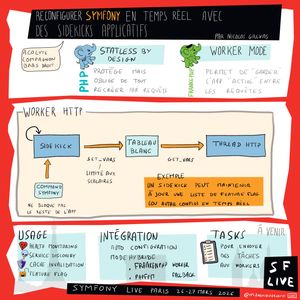 RECONFIGURER SYMFONY EN TEMPS RÉEL AVEC
DES SIDEKICKS APPLICATIFS
PAR NICOLAS GREKAS
ACOLYTE
COMPAGNON
BRAS DROIT
PHP
STATLESS BY
DESIGN
PROTÈGE MAIS
OBLIGE DE TOUT
RECRÉER PAR REQUÊTE
FRANKENPHP
WORKER MODE
PERMET DE GARDER
L'APP "ACTIVE" ENTRE
LES REQUÊTES
WORKER HTTP
SIDEKICK
TABLEAU
BLANC
THREAD HTTP
SET_VARS
/
LIMITÉ AUX
SCALAIRES
GET_VARS
COMMAND
SYMFONY
NE BLOQUE PAS
LE RESTE DE L'APP
EXEMPLE
UN SIDEKICK PEUT MAINTENIR
À JOUR UNE LISTE DE FEATURE FLAG
(OU AUTRE CONFIG) EN TEMPS RÉEL
USAGE
HEALTH MONITORING
SERVICE DISCOVERY
CACHE INVALIDATION
FEATURE FLAG
INTÉGRATION
AUTO CONFIGURATION
MODE HYBRIDE
FRANKENPHP WORKER
PHP FPM FALLBACK
À VENIR
TASKS
POUR ENVOYER
DES TÂCHES
AUX WORKERS
SF
LIVE
SYMFONY LIVE PARIS 26-27 MARS 2026